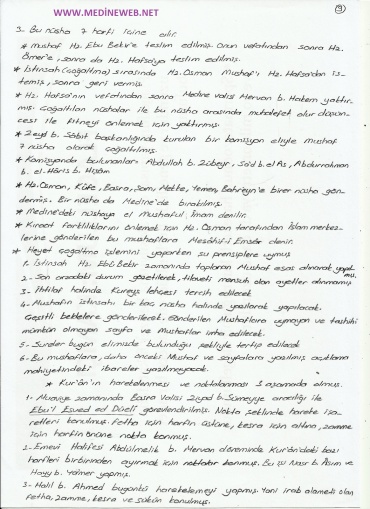 www.MEDINEWEB.NET
9
3- Bu nüsha 7 harfi icine alır.
* Mushaf Hz. Ebu Bekir'e teslim edilmiş. Onun vefatından sonra Hz.
Ömer'e, sonra da Hz. Hafsa'ya teslim edilmiş.
* İstinsah (çoğaltma) sırasında Hz. Osman Mushaf'ı Hz. Hafsa'dan is-
temiş, sonra geri vermiş.
* Hz. Hafsa'nın vefatından sonra Medine Valisi Mervan b. Hakem yaktır-
mış. Çoğaltılan nüshalar ile bu nüsha arasında muhalefet olur düşün-
cesi ile fitneyi önlemek için yaktırmış.
* Zeyd b. Sâbit başkanlığında kurulan bir komisyon eliyle mushaf
7 nüsha olarak çoğaltılmış.
* Komisyonda bulunanlar: Abdullah b. Zübeyr, Said b. el As, Abdurrahman
b. el-Hâris b. Hişâm
* Hz. Osman, Kûfe, Basra, Şam, Mekke, Yemen, Bahreyn'e birer nüsha gön-
dermiş. Bir nüsha da Medine'de bırakılmış.
* Medine'deki nüshaya el Mushaful İmam denilir.
* Kıraat farklılıklarını önlemek için Hz. Osman tarafından İslam merkez-
lerine gönderilen bu mushaflara Mesâhif-i Emsâr denir.
* Heyet çoğaltma işlemini yaparken şu prensiplere uymuş
1. İstinsah Hz. Ebû Bekir zamanında toplanan Mushaf esas alınarak yapıl-
mış.
2- Son arzadaki durum gözetilerek, tilaveti mensuh olan ayetler alınmamış.
3- İhtilaf halinde Kureyş lehçesi tercih edilecek
4- Mushaf'ın istinsahı bir kaç nüsha halinde yazılarak yapılacak.
Çeşitli beldelere gönderilerek. Gönderilen Mushaflara uymayan ve tashihi
mümkün olmayan sayfa ve Mushaflar imha edilecek.
5- Sureler bugün elimizde bulunduğu şekliyle tertip edilecek
6- Bu mushaflara, daha önceki Mushaf ve sayfalara yazılmış açıklama
mahiyetindeki ibareler yazılmayacak.
* Kur'ân'ın harekelenmesi ve noktalanması 3 aşamada olmuş.
1- Muaviye zamanında Basra Valisi Ziyad b. Sümeyye aracılığı ile
Ebu'l Esved ed Düeli görevlendirilmiş. Nokta şeklinde hareke işa-
retleri konulmuş. Fetha için harfin üstüne, kesra için altına, zamme
için harfin önüne nokta konmuş.
2- Emevi Halifesi Abdülmelik b. Mervan döneminde Kur'ân'daki bazı
harfleri birbirinden ayırmak için noktalar konmuş. Bu işi Nasr b. Âsım ve
Hayy b. Ya'mer yapmış.
3- Halil b. Ahmed bugünkü harekelemeyi yapmış. Yani irab alameti olan
fetha, zamme, kesra ve sükûn konulmuş.